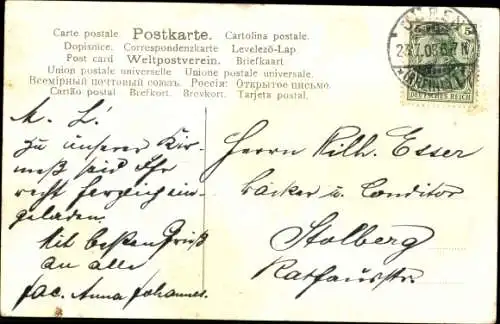 Carte postale. Postkarte. Cartolina postale.
Dopisnice. Correspondenzkarte Levelező-Lap.
Post card Weltpostverein. Briefkaart
Union postale universelle Unione postale universale.
Всемірный почтовый союзъ. Россія: Открытое письмо.
Cartão postal Brefkort. Brevkort. Tarjeta postal.
5 5
DEUTSCHES REICH
M. L!
Zu unserer Kir-
meß seid Ihr
recht herzlich ein-
geladen.
Mit besten Gruß
an alle
Jac. Anna Johannes.
Herrn Wilh. Esser
Bäcker u. Conditor
Stolberg
Rathausstr.